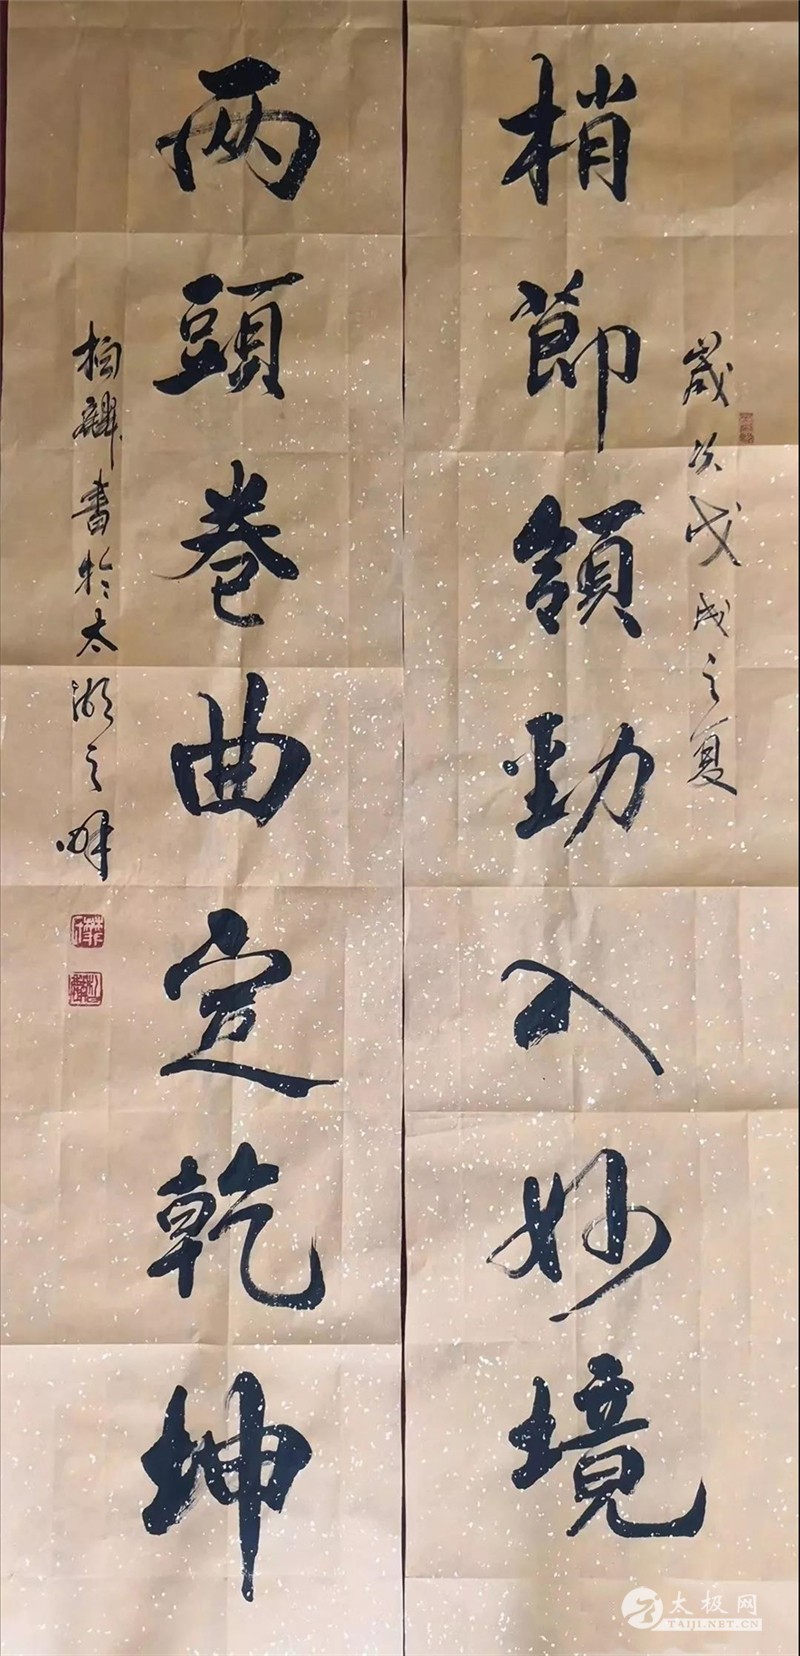 歲次戊戌之夏
梢節領勁入妙境
两頭卷曲定乾坤
柏麟書於太湖之畔
太极网
TAIJI.NET.CN